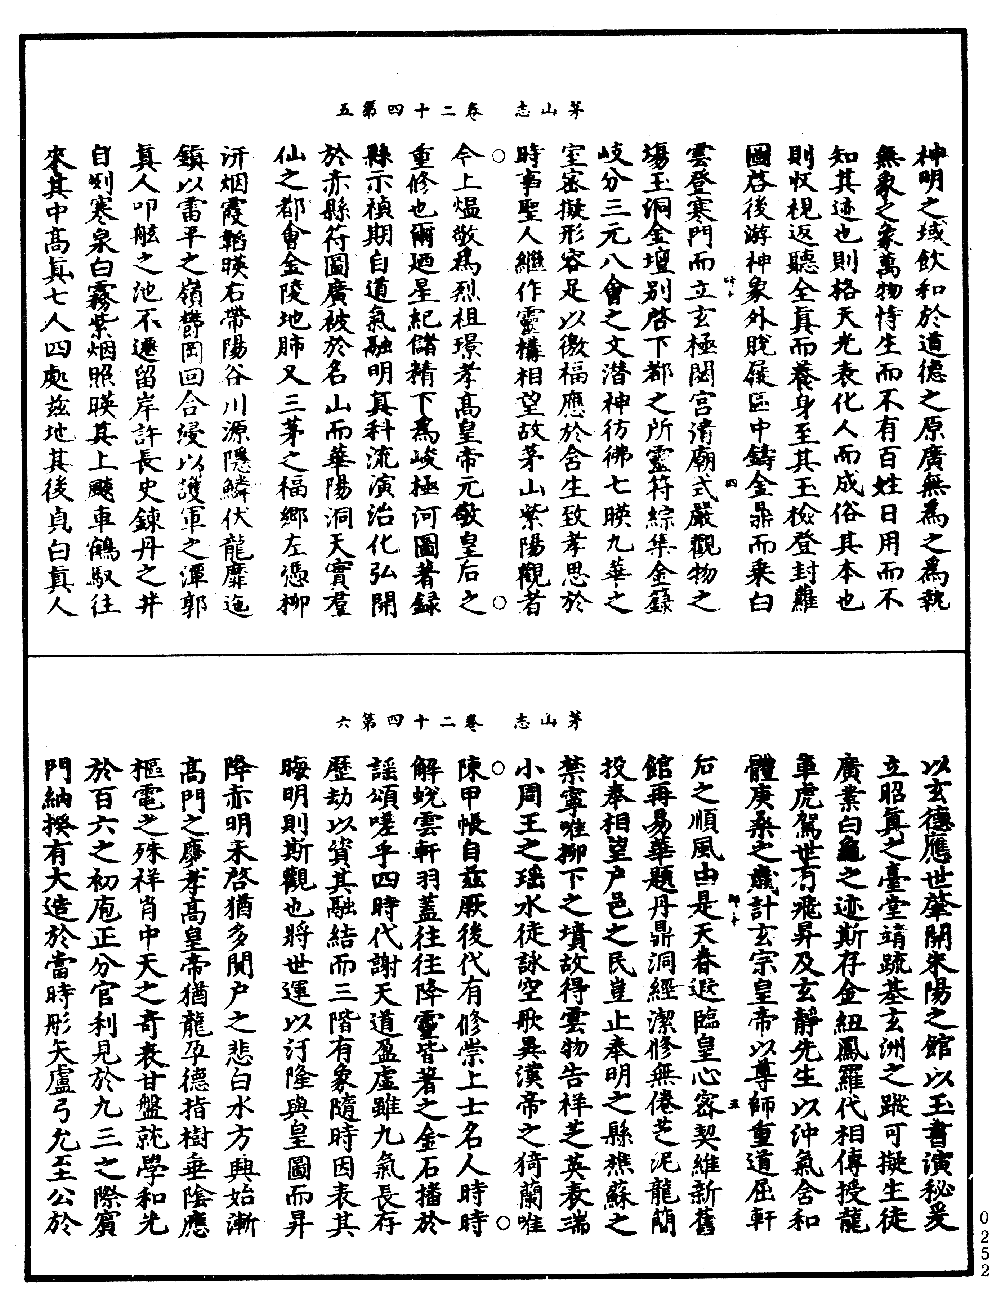 茅山志　卷二十四第五
神明之域飲和於道德之原廣無為之為執
無象之象萬物恃生而不有百姓日用而不
知其迹也則格天光表化人而成俗其本也
則收視返聽全真而養身至其玉檢登封蘿
圖啓後游神象外脫屣區中鑄金鼎而乗白
雲登寒門而立玄極閟宮清廟式嚴觀物之
塲玉洞金壇別啓下都之所靈符綜集金籙
岐分三元八會之文潛神彷彿七暎九華之
室密擬形容足以徼福應於含生致孝思於
時事聖人繼作靈構相望故茅山紫陽觀者
○今上煴敬為烈祖璟孝高皇帝元敬皇后之○
重修也爾廼星紀儲精下為峻極河圖著録
縣示禎期自道氣融明真科流演治化弘開
於赤縣符圖廣被於名山而華陽洞天實羣
仙之都會金陵地肺又三茅之福鄉左憑柳
汧烟霞韜暎右帶陽谷川源隱鱗伏龍靡迤
鎮以雷平之嶺欝岡回合縵以護軍之潭郭
真人叩舷之池不遷留岸許長史鍊丹之井
自冽寒泉白霧紫烟照暎其上飈車鶴馭往
來其中高真七人四處茲地其後貞白真人
茅山志　卷二十四第六
以玄德應世肇開朱陽之館以玉書演秘爰
立昭真之臺堂靖疏基玄洲之蹤可擬生徒
廣業白龜之迹斯存金紐鳳羅代相傳授龍
車虎駕世有飛昇及玄靜先生以沖氣含和
體庚桑之歲計玄宗皇帝以尊師重道屈軒
后之順風由是天眷遐臨皇心密契維新舊
館再易華題丹鼎洞經潔修無倦芝泥龍簡
投奉相望户邑之民豈止奉明之縣樵蘇之
禁寧唯柳下之墳故得雲物告祥芝英表瑞
小周王之瑶水徒詠空歌異漢帝之猗蘭唯
○陳甲帳自茲厥後代有修崇上士名人時時○
解蛻雲軒羽蓋往往降靈皆著之金石播於
謡頌嗟乎四時代謝天道盈虛雖九氣長存
歷劫以資其融結而三階有象隨時因表其
晦明則斯觀也將世運以汙隆與皇圖而昇
降赤明未啓猶多閴户之悲白水方興始漸
高門之慶孝高皇帝猶龍孕德指樹垂陰應
樞電之殊祥肖中天之奇表甘盤就學和光
於百六之初庖正分官利見於九三之際賓
門納揆有大造於當時彤矢盧弓允至公於
0252